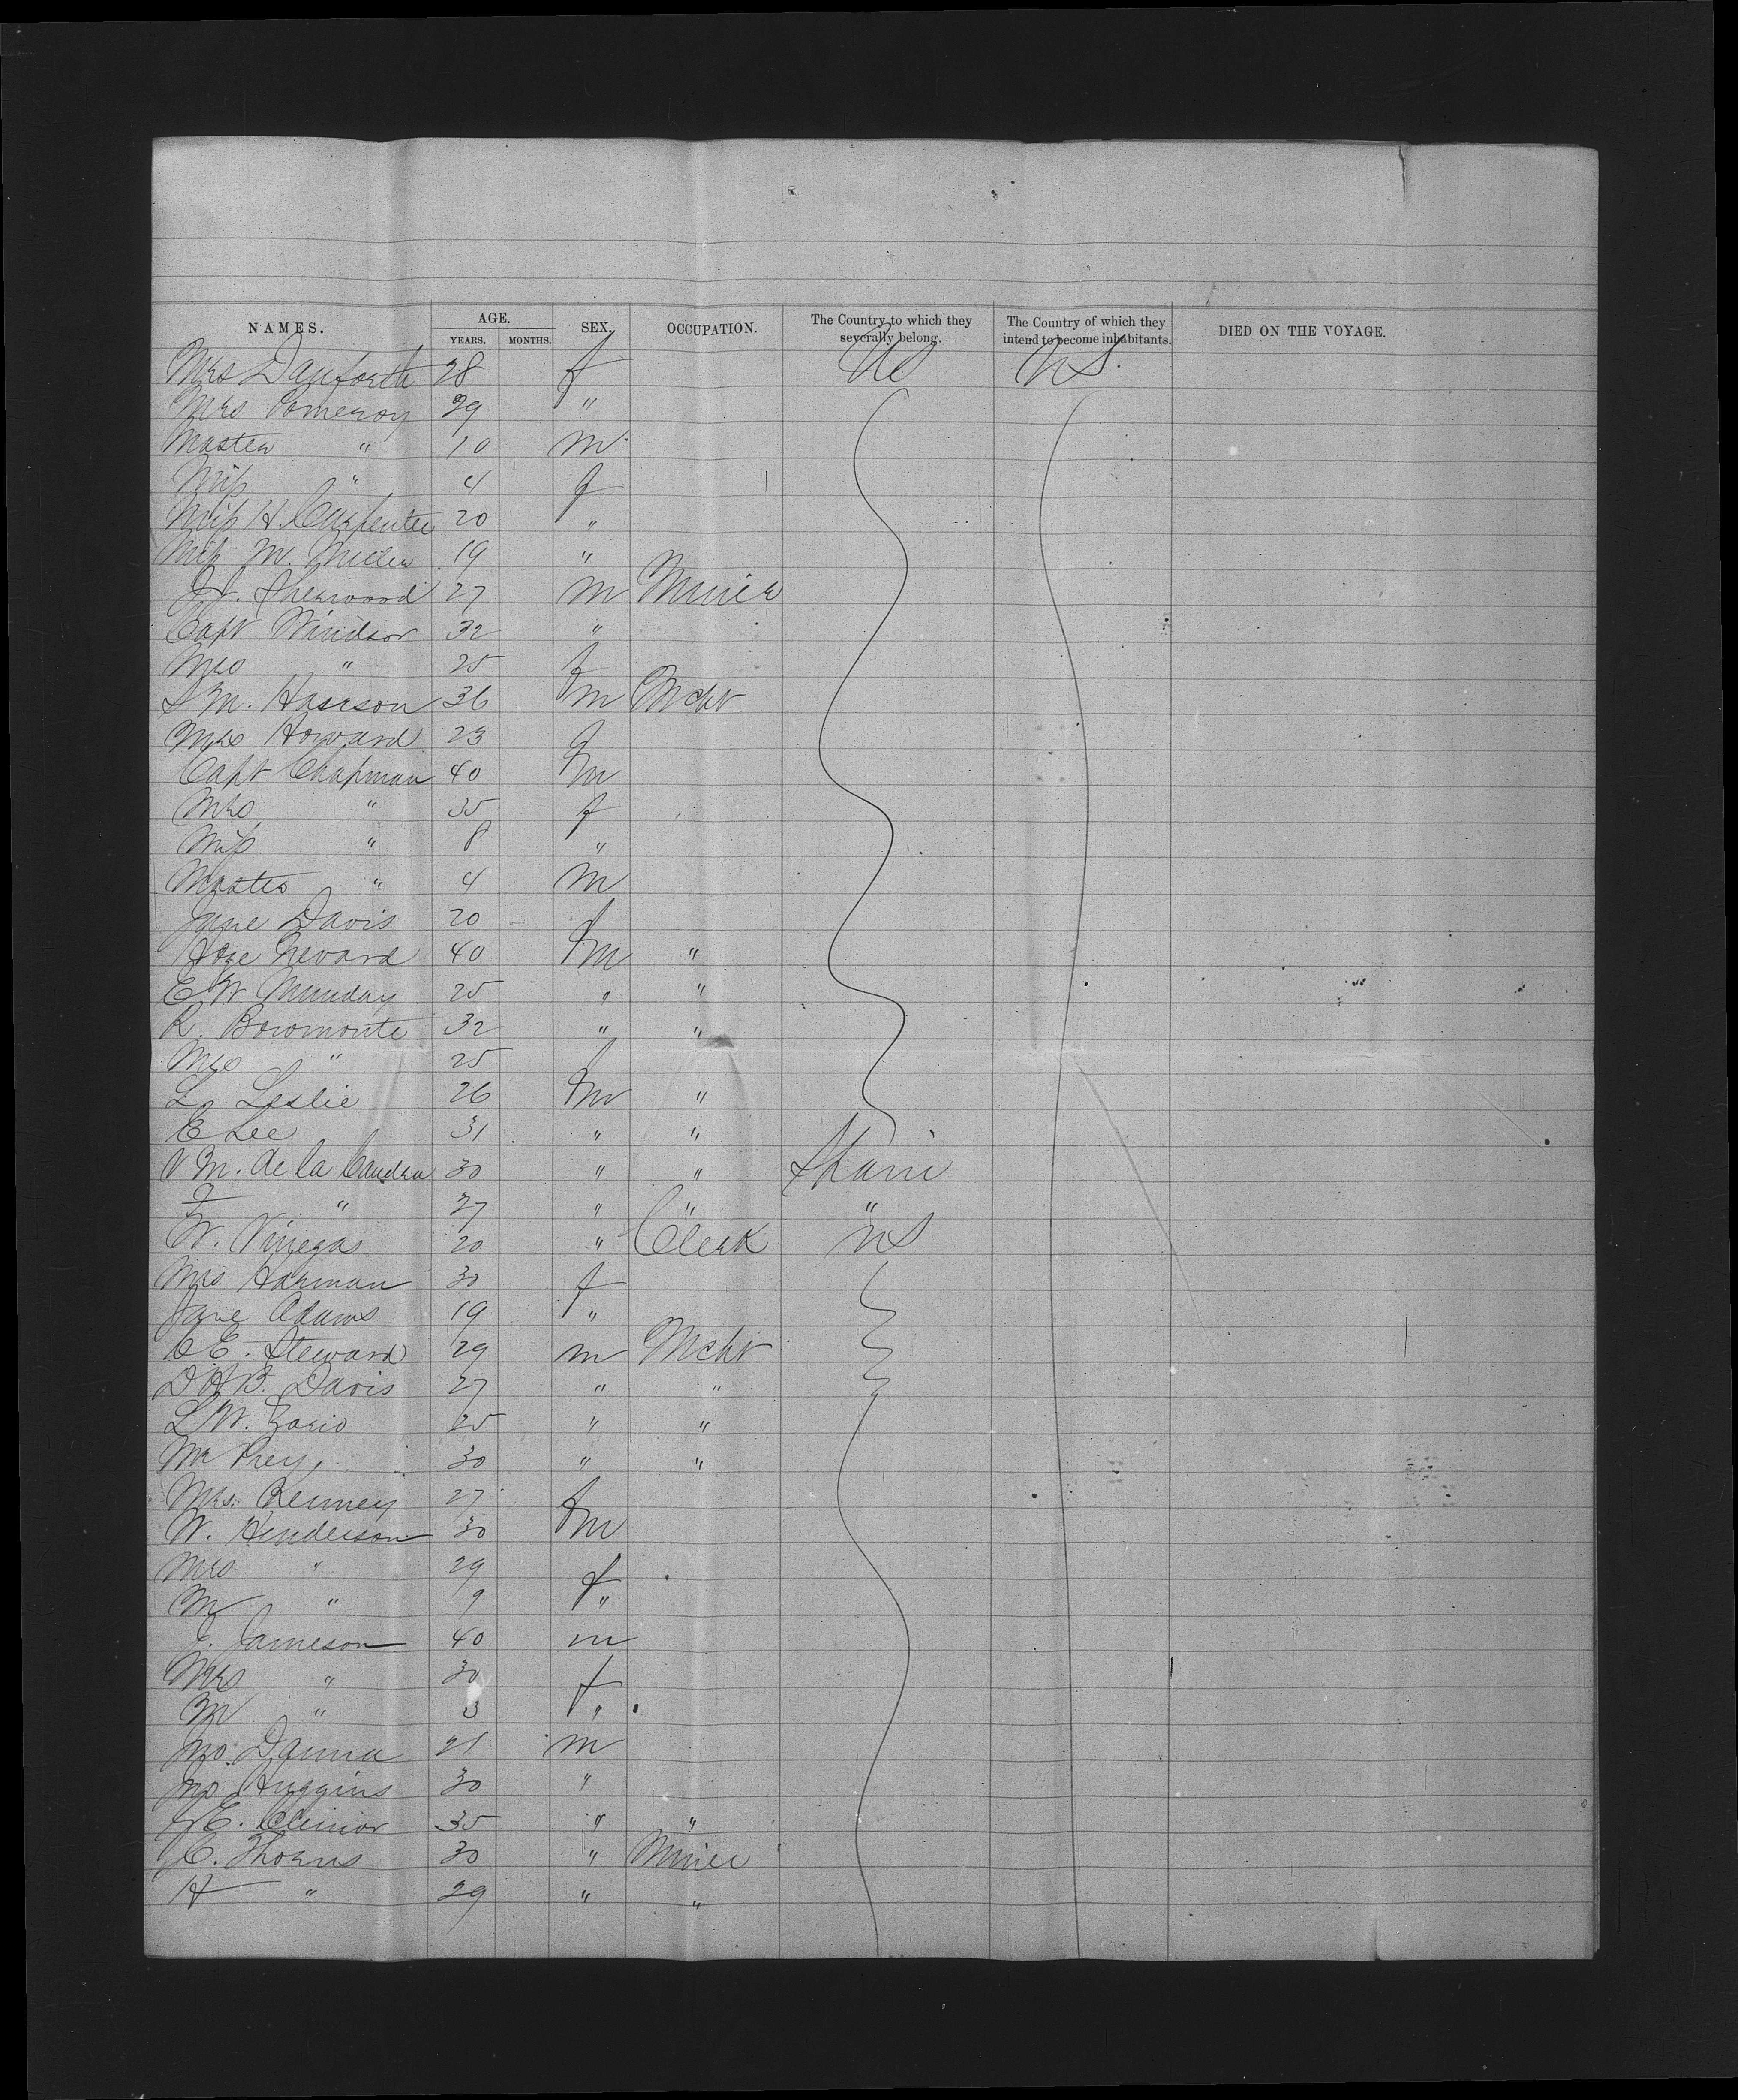 NAMES. AGE. SEX. OCCUPATION. The Country to which they severally belong. The Country of which they intend to become inhabitants. DIED ON THE VOYAGE.
YEARS. MONTHS.
Mrs Danforth 28 f US US.
Mrs Pomeroy 29 "
Master " 10 m
Miss " 4 f
Miss H. Carpenter 20 "
Miss M. Miller 19 "
J. Sherwood 27 m Miner
Capt Windsor 32 "
Mrs " 25 f
S M. Hasson 36 m Mcht
Mrs Howard 23 f
Capt Chapman 40 m
Mrs " 35 f
Miss " 8 "
Master " 4 m
Jane Davis 20 f
Jose Nevard 40 m "
E W. Munday 25 " "
R. Bowmonte 32 " "
Mrs " 25 f
L. Leslie 26 m "
E Lee 31 " "
V M. de la Caudra 30 " " Spain
F " 27 " " "
W. Vinegas 20 " Clerk US
Mrs Harman 30 f
Jane Adams 19 "
C E. Steward 29 m Mcht
D H B. Davis 27 " "
L W. 25 " "
Mr Prey 30 " "
Mrs. Kenney 27 f
W. Henderson 30 m
Mrs " 29 f
M " 9 "
J. Jameson 40 m
Mrs " 30 f
M " 3 "
Jno. 21 m
Jno Huggins 30 "
E. 35 " "
C. Thorns 30 " Miner
H " 29 " "